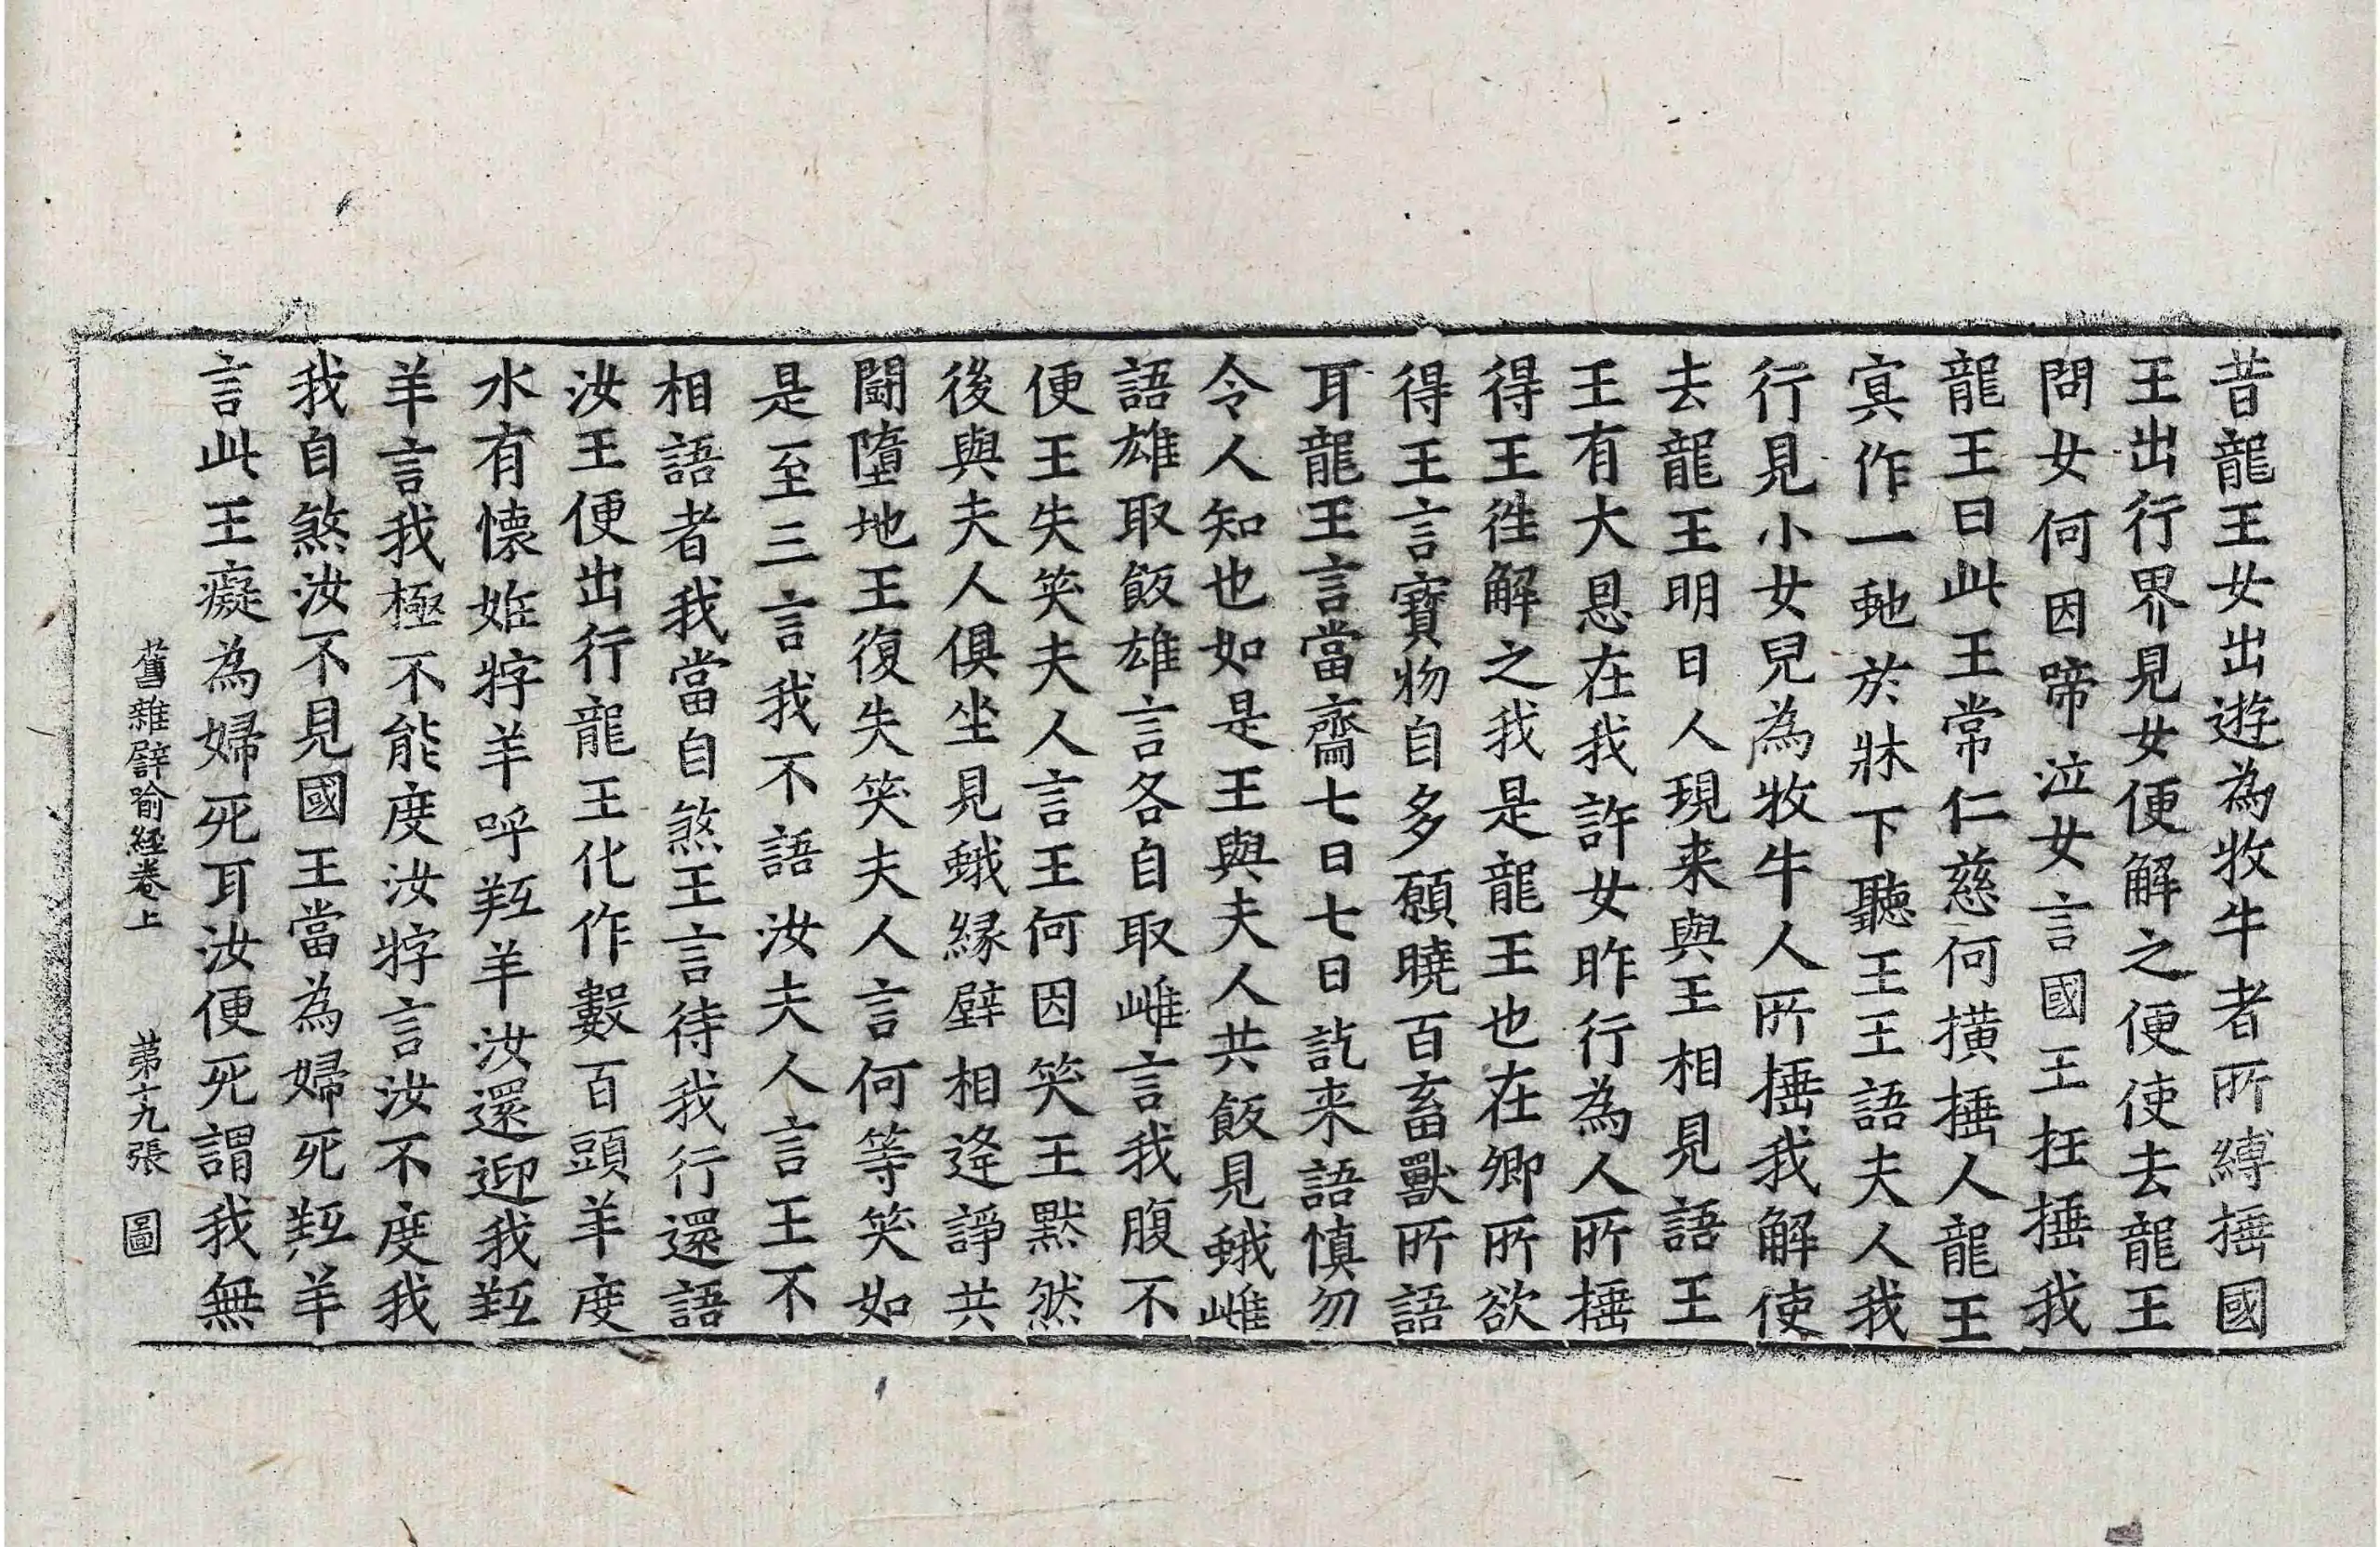 昔龍王女出遊為牧牛者所縛捶國
王出行界見女便解之便使去龍王
問女何因啼泣女言國王抂捶我
龍王曰此王常仁慈何橫捶人龍王
㝠作一虵於牀下聽王王語夫人我
行見小女兒為牧牛人所捶我解使
去龍王明日人現来與王相見語王
王有大恩在我許女昨行為人所捶
得王徃解之我是龍王也在卿所欲
得王言寶物自多願曉百畜獸所語
耳龍王言當齋七日七日訖来語慎勿
令人知也如是王與夫人共飯見蛾雌
語雄取飯雄言各自取雌言我腹不
便王失笑夫人言王何因笑王默然
後與夫人俱坐見蛾縁壁相逢諍共
鬪墮地王復失笑夫人言何等笑如
是至三言我不語汝夫人言王不
相語者我當自煞王言待我行還語
汝王便出行龍王化作數百頭羊度
水有懷妊牸羊呼羖羊汝還迎我羖
羊言我極不能度汝牸言汝不度我
我自煞汝不見國王當為婦死羖羊
言此王癡為婦死耳汝便死謂我無
舊雜譬喻經卷上　第十九張　圖